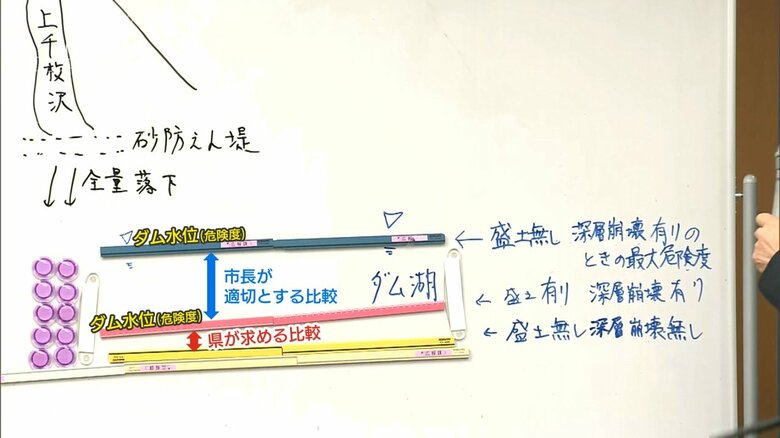 上千枚沢
砂防えん堤
全量落下
ダム水位(危険度)
← 盛土無し 深層崩壊有りの
ときの最大危険度
市長が
適切とする比較
ダム湖
← 盛土有り 深層崩壊有り
ダム水位(危険度)
県が求める比較
← 盛土無し深層崩壊無し